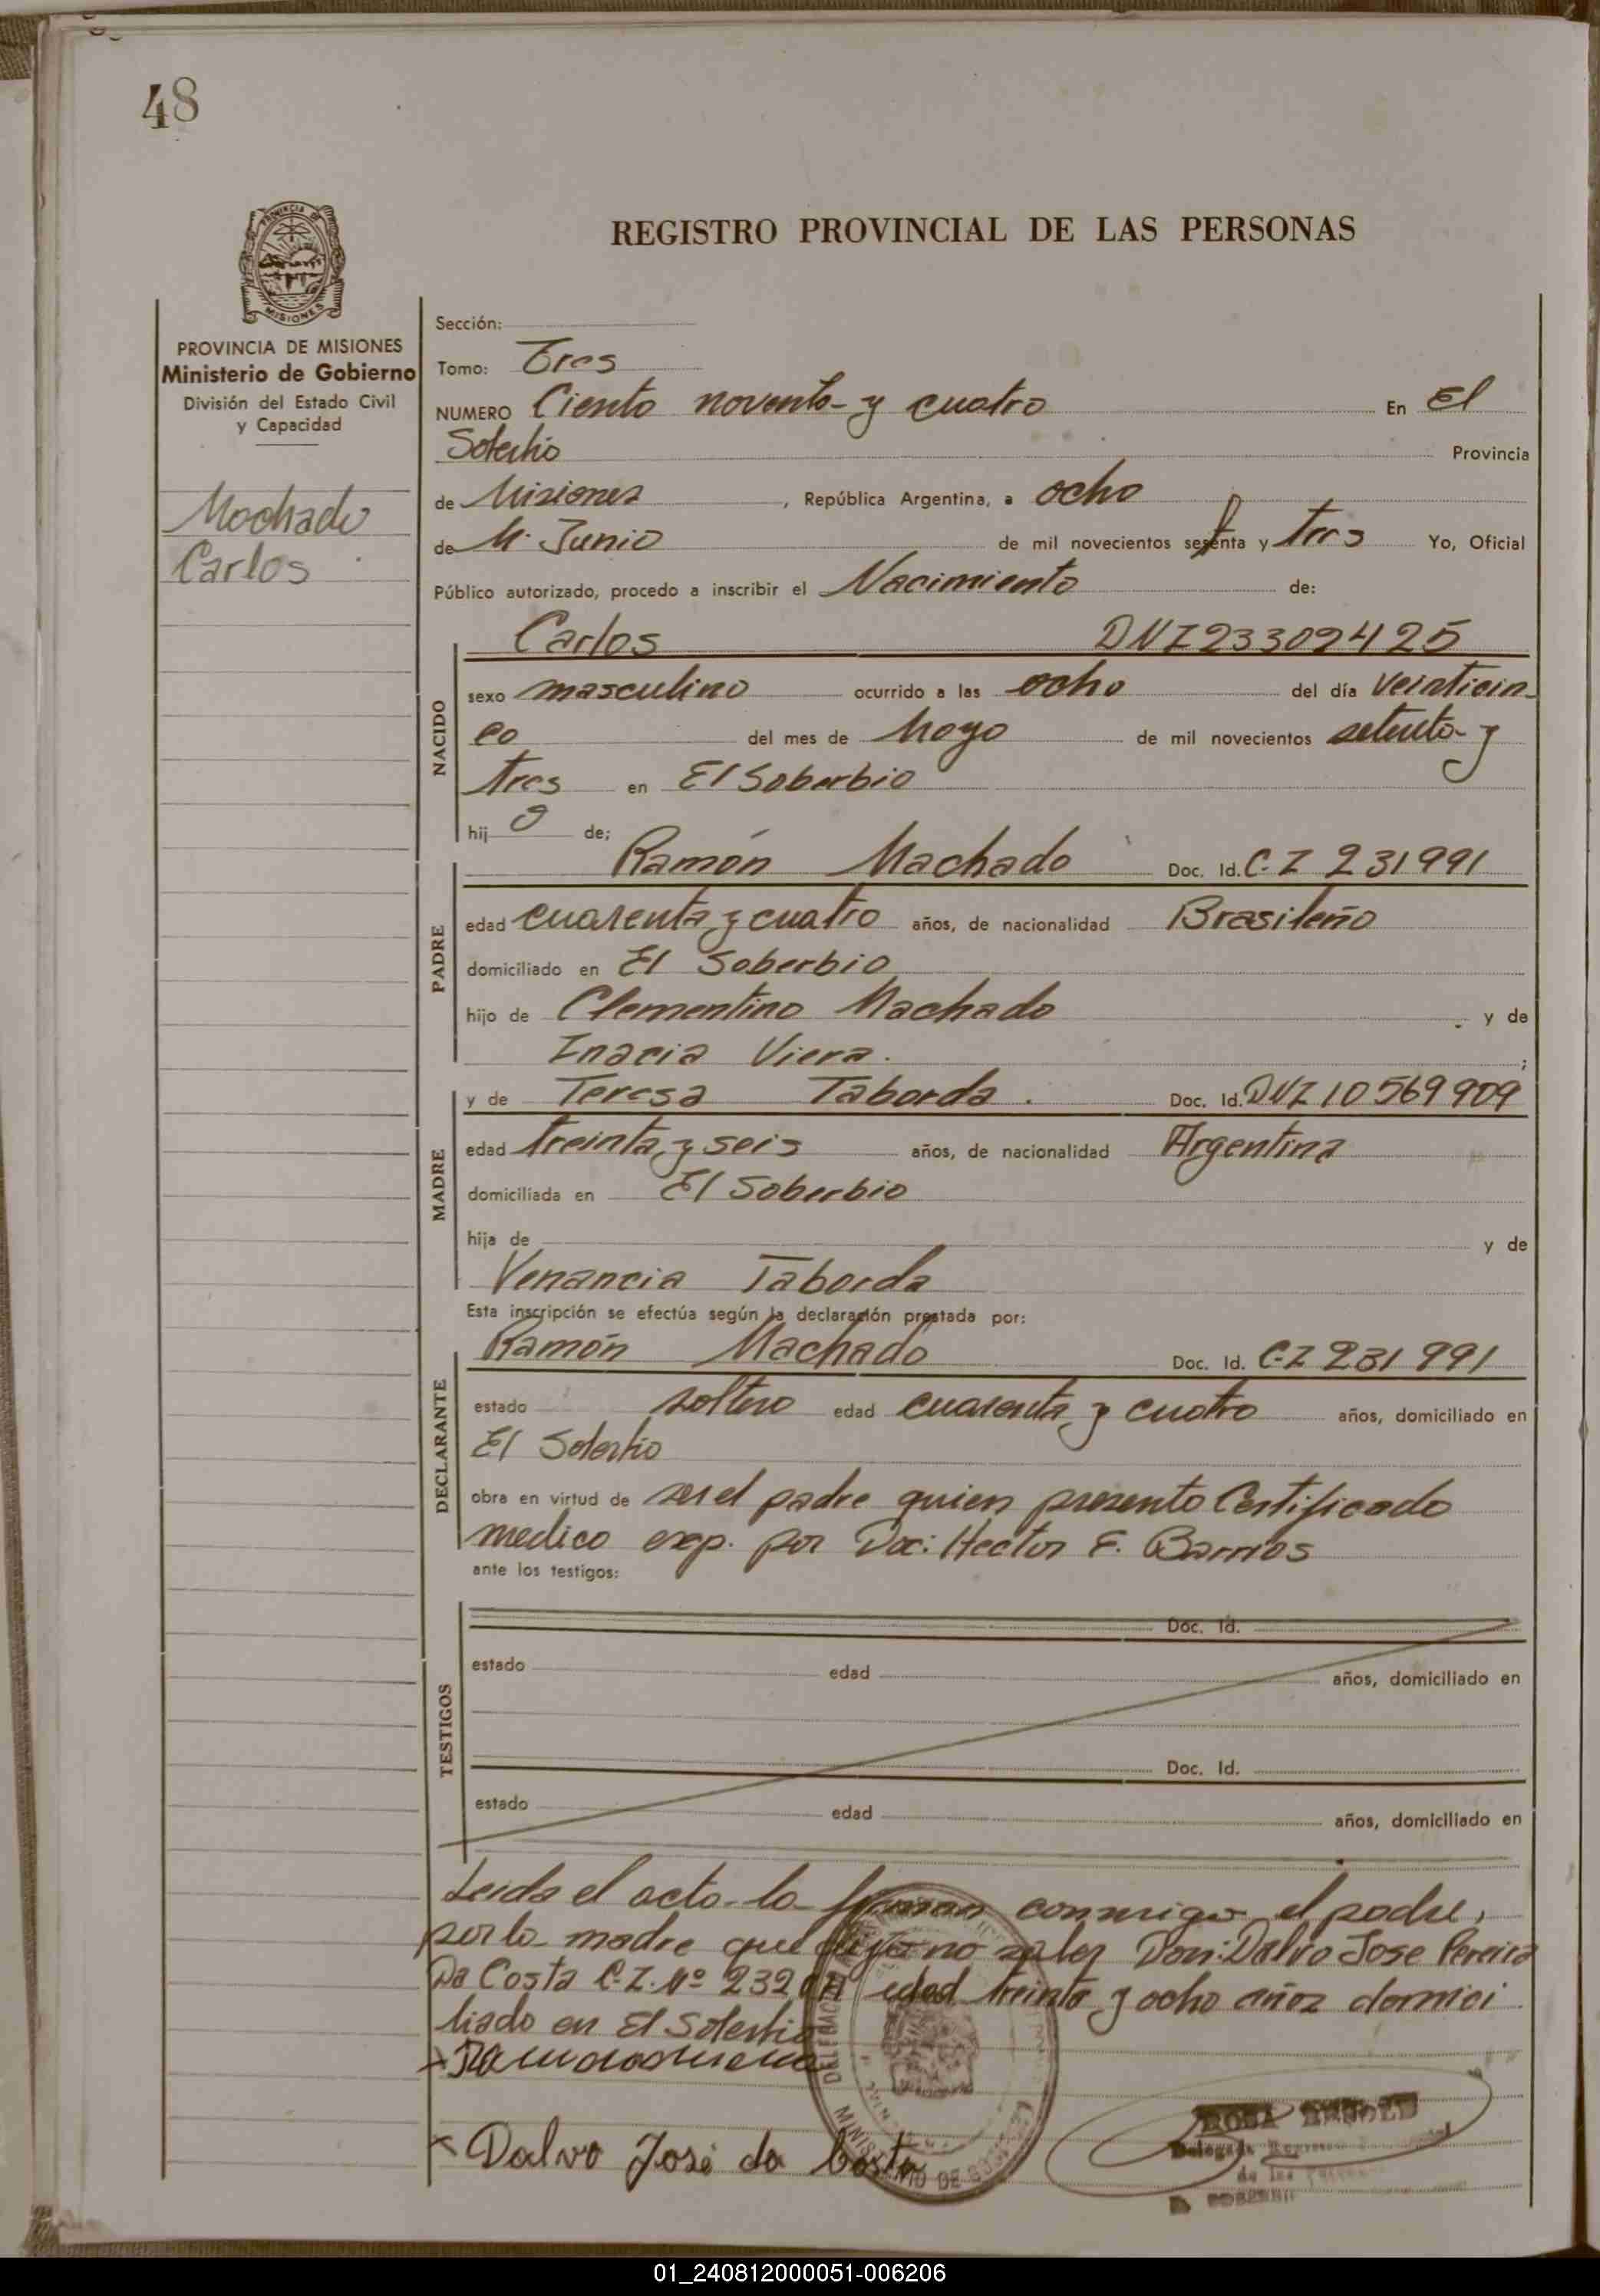 48
REGISTRO PROVINCIAL DE LAS PERSONAS
PROVINCIA DE MISIONES
Ministerio de Gobierno
División del Estado Civil
y Capacidad
Machado
Carlos
Sección:
Tomo: Tres
NUMERO Ciento noventa y cuatro En El
Soberbio Provincia
de Misiones, República Argentina, a ocho
de M. Junio de mil novecientos setenta y tres Yo, Oficial
Público autorizado, procedo a inscribir el Nacimiento de:
Carlos DNI 23302425
NACIDO
sexo masculino ocurrido a las ocho del día veinticin-
co del mes de Mayo de mil novecientos setenta y
tres en El Soberbio
hijo de;
PADRE
Ramón Machado Doc. Id. C-I 231991
edad cuarenta y cuatro años, de nacionalidad Brasileño
domiciliado en El Soberbio
hijo de Clementino Machado y de
Inacia Viera.;
MADRE
y de Teresa Taborda. Doc. Id. DNI 10569909
edad treinta y seis años, de nacionalidad Argentina
domiciliada en El Soberbio
hija de y de
Venancia Taborda
Esta inscripción se efectúa según la declaración prestada por:
DECLARANTE
Ramón Machado Doc. Id. C-I 231991
estado soltero edad cuarenta y cuatro años, domiciliado en
El Soberbio
obra en virtud de ser el padre quien presento Certificado
medico exp. por Doc: Hector F. Barrios
ante los testigos:
TESTIGOS
Doc. Id.
estado edad años, domiciliado en
Doc. Id.
estado edad años, domiciliado en
Leida el acta la firman conmigo el padre,
por la madre que dijo no saber Don: Dalvo Jose Pereira
Da Costa C.I. Nº 232 edad treinta y ocho años domici
liado en El Soberbio
x Dalvo José da Costa
ROSA
Delegada
de las
01_240812000051-006206